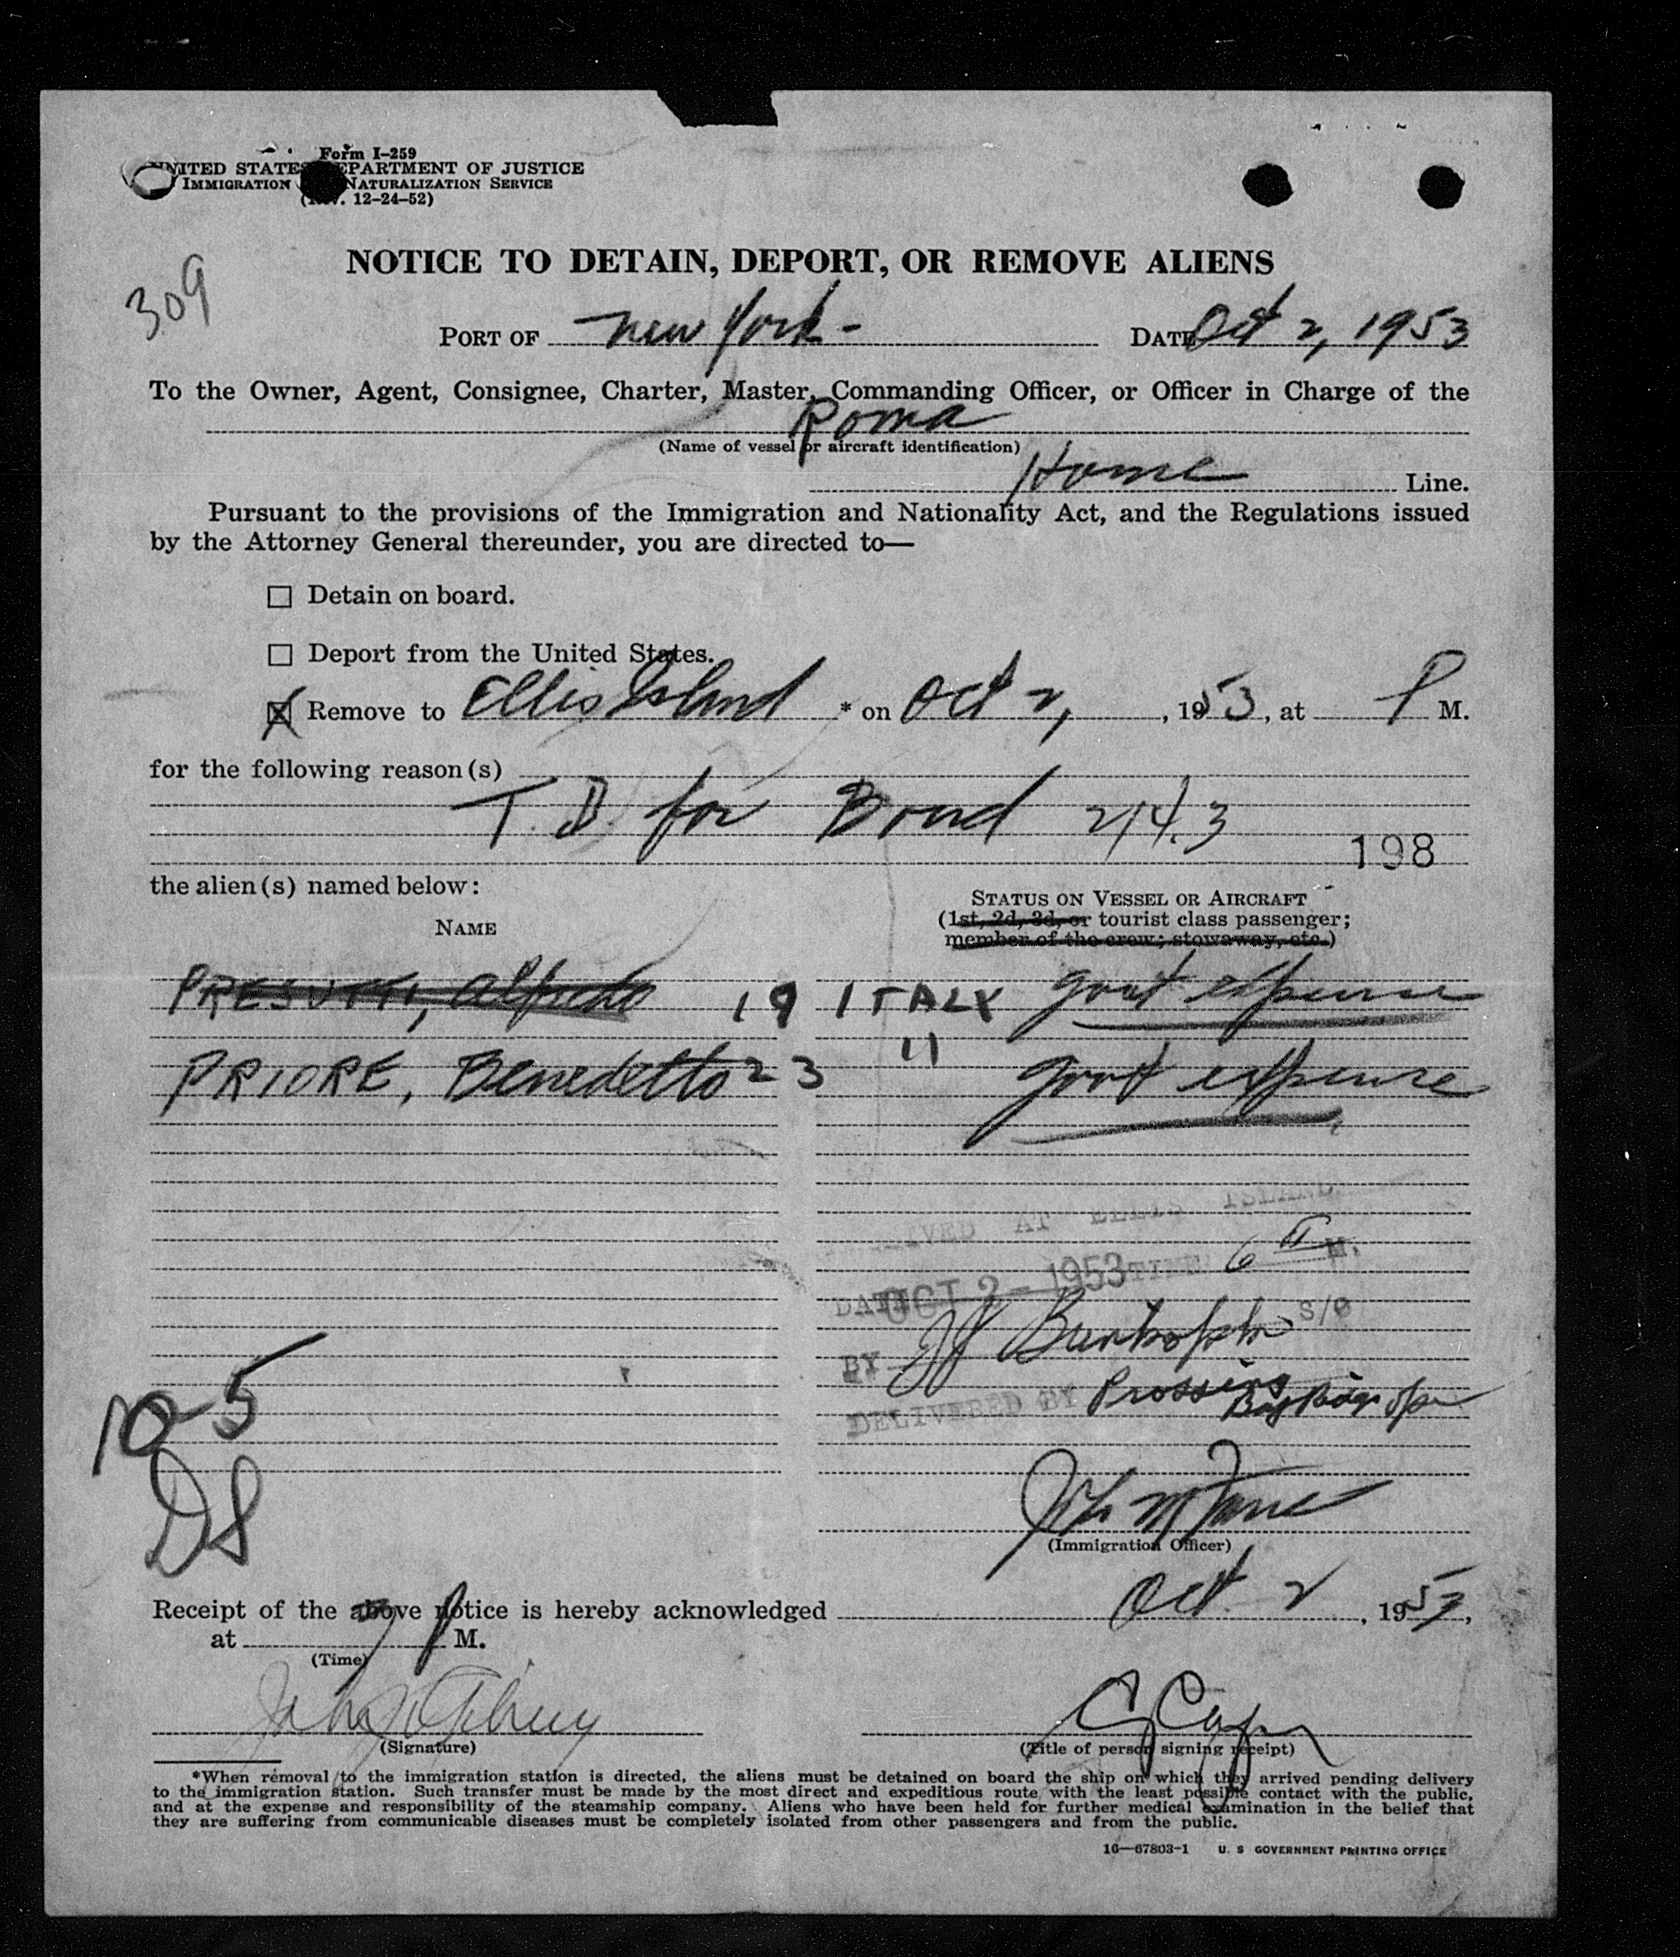 Form I-259
UNITED STATES DEPARTMENT OF JUSTICE
IMMIGRATION NATURALIZATION SERVICE
(Rev. 12-24-52)
309
NOTICE TO DETAIN, DEPORT, OR REMOVE ALIENS
PORT OF New York - DATE Oct 2, 1953
To the Owner, Agent, Consignee, Charter, Master, Commanding Officer, or Officer in Charge of the
Roma
(Name of vessel or aircraft identification)
Home Line.
Pursuant to the provisions of the Immigration and Nationality Act, and the Regulations issued
by the Attorney General thereunder, you are directed to—
☐ Detain on board.
☐ Deport from the United States.
☒ Remove to Ellis Island * on Oct 2, , 1953, at P M.
for the following reason(s)
T.D. for Bond 214.3
198
the alien(s) named below:
STATUS ON VESSEL OR AIRCRAFT
NAME
(1st, 2d, 3d, or tourist class passenger;
member of the crew; stowaway, etc.)
PRESUTTI, Alfredo 19 ITALY govt expense
PRIORE, Benedetto 23 " govt expense
AT ELLIS ISLAND
DATE OCT 2 - 1953 TIME 6 M.
BY S/O
DELIVERED BY
10-5
DS
(Immigration Officer)
Receipt of the above notice is hereby acknowledged Oct. 2, 1953,
at 7 P M.
(Time)
(Signature)
(Title of person signing receipt)
*When removal to the immigration station is directed, the aliens must be detained on board the ship on which they arrived pending delivery
to the immigration station. Such transfer must be made by the most direct and expeditious route with the least possible contact with the public,
and at the expense and responsibility of the steamship company. Aliens who have been held for further medical examination in the belief that
they are suffering from communicable diseases must be completely isolated from other passengers and from the public.
16—67803-1 U. S GOVERNMENT PRINTING OFFICE